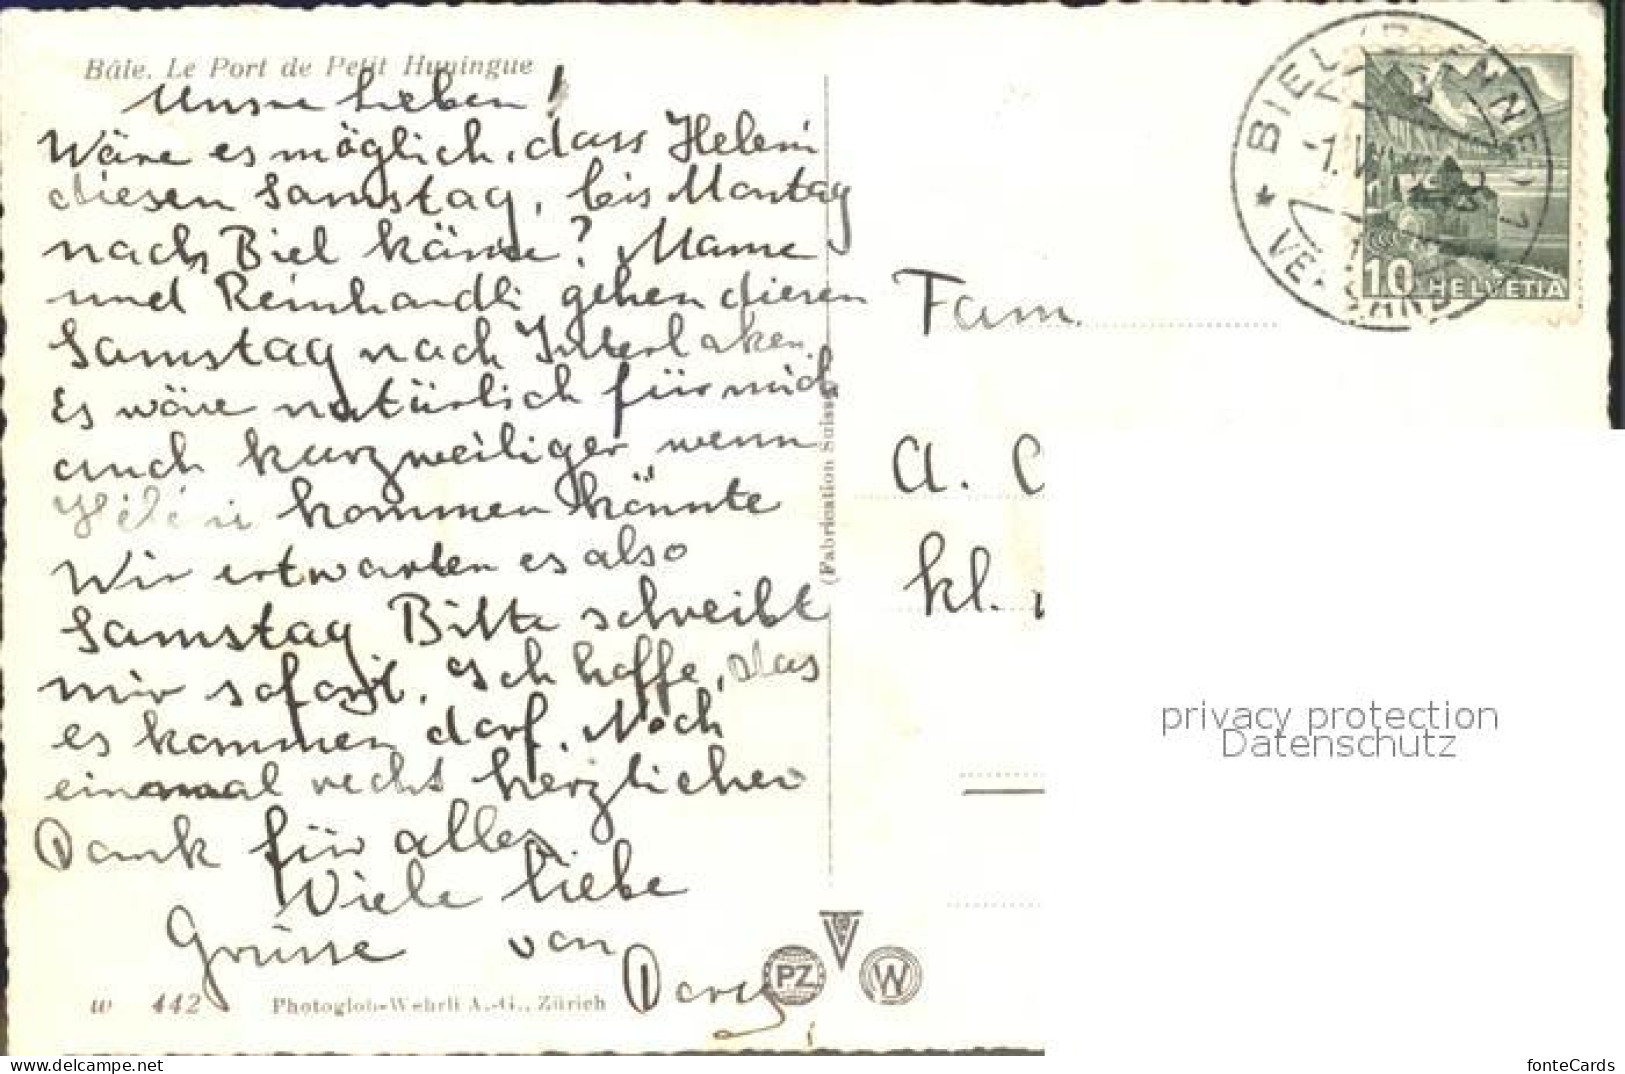 Bâle. Le Port de Petit Huningue
Unsre Lieben!
Wäre es möglich, dass Heleni
diesen Samstag, bis Montag
nach Biel käme? Mame
und Reinhardli gehen diesen
Samstag nach Interlaken.
Es wäre natürlich für mich
auch kurzweiliger wenn
Heleni kommen könnte
Wir erwarten es also
Samstag Bitte schreibt
mir sofort. Ich hoffe, das
es kommen darf. Noch
einmal recht herzlichen
Dank für alles.
Viele liebe
Grüsse von
w 442 Photoglob-Wehrli A.-G., Zürich
(Fabrication Suisse)
PZ
W
BIEL
* VERSAND
10 HELVETIA
Fam.
A. C
kl.
privacy protection
Datenschutz
https://www.ak-ansichtskarten.de
fonteCards